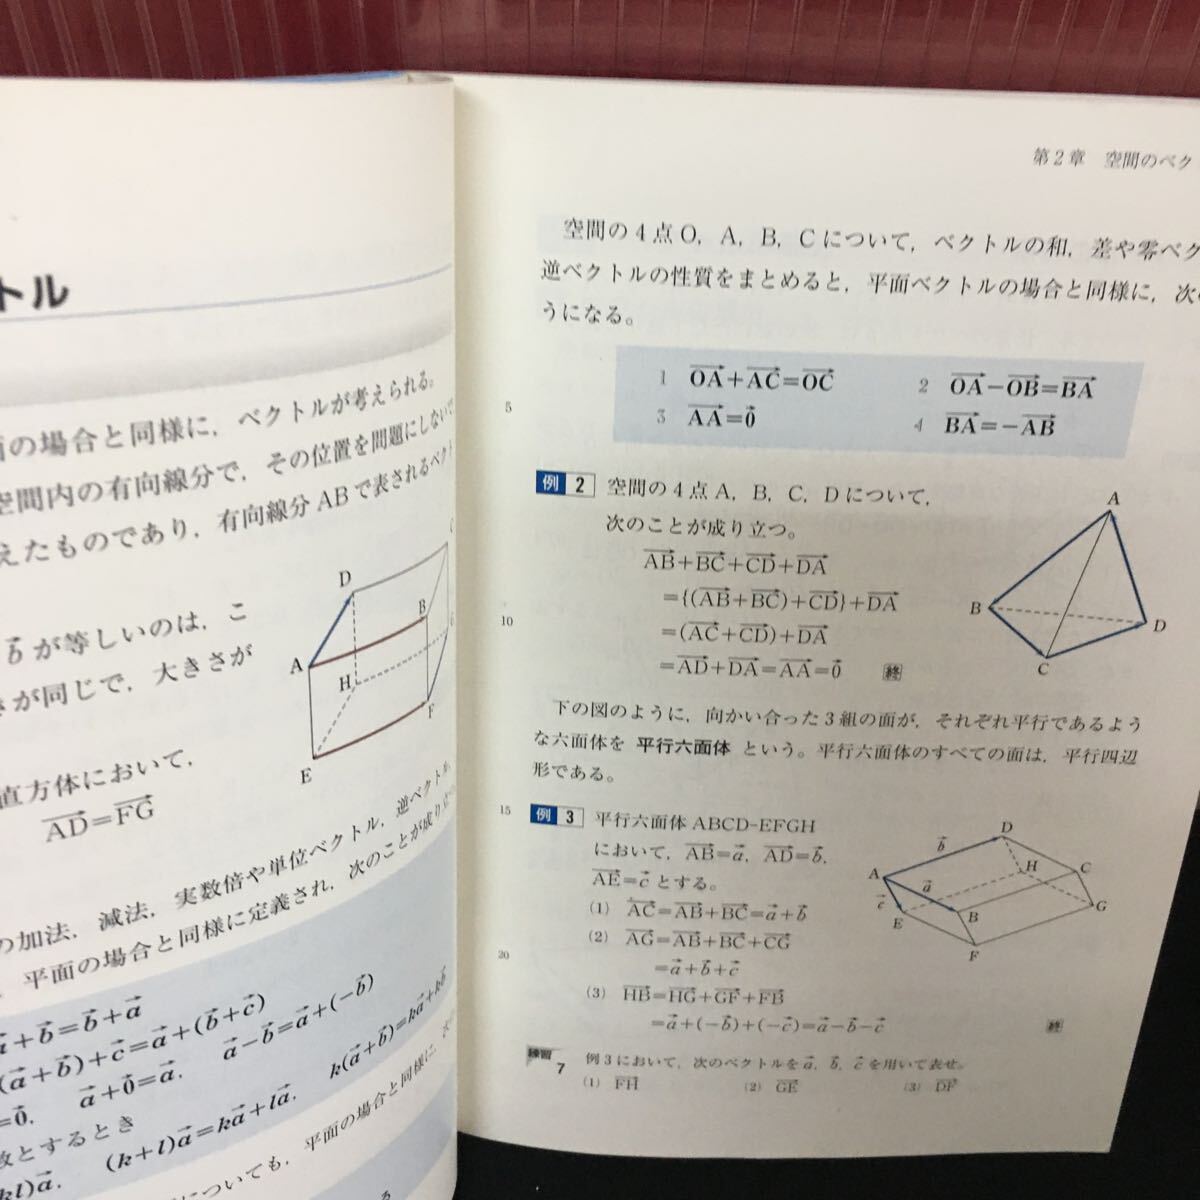 トル
の場合と同様に，ベクトルが考えられる。
空間内の有向線分で，その位置を問題にしないで
えたものであり，有向線分 AB で表されるベクト
b⃗ が等しいのは，こ
きが同じで，大きさが
直方体において，
A⃗D⃗=F⃗G⃗
D
B
A
H
F
E
の加法，減法，実数倍や単位ベクトル，逆ベクトル，
平面の場合と同様に定義され，次のことが成り立つ
a⃗+b⃗=b⃗+a⃗
(a⃗+b⃗)+c⃗=a⃗+(b⃗+c⃗)
=0⃗, a⃗+0⃗=a⃗, a⃗-b⃗=a⃗+(-b⃗)
数とするとき k(a⃗+b⃗)=ka⃗+kb⃗
kl)a⃗, (k+l)a⃗=ka⃗+la⃗,
についても，平面の場合と同様に，
第2章 空間のベク
空間の4点O，A，B，Cについて，ベクトルの和，差や零ベク
逆ベクトルの性質をまとめると，平面ベクトルの場合と同様に，次の
うになる。
1 O⃗A⃗+A⃗C⃗=O⃗C⃗ 2 O⃗A⃗-O⃗B⃗=B⃗A⃗
5
3 A⃗A⃗=0⃗ 4 B⃗A⃗=-A⃗B⃗
例 2 空間の4点A，B，C，Dについて，
次のことが成り立つ。
A⃗B⃗+B⃗C⃗+C⃗D⃗+D⃗A⃗
={(A⃗B⃗+B⃗C⃗)+C⃗D⃗}+D⃗A⃗
10
=(A⃗C⃗+C⃗D⃗)+D⃗A⃗
=A⃗D⃗+D⃗A⃗=A⃗A⃗=0⃗ 終
A
B
D
C
下の図のように，向かい合った3組の面が，それぞれ平行であるよう
な六面体を 平行六面体 という。平行六面体のすべての面は，平行四辺
形である。
15
例 3 平行六面体 ABCD-EFGH
において，A⃗B⃗=a⃗，A⃗D⃗=b⃗，
A⃗E⃗=c⃗ とする。
(1) A⃗C⃗=A⃗B⃗+B⃗C⃗=a⃗+b⃗
(2) A⃗G⃗=A⃗B⃗+B⃗C⃗+C⃗G⃗
20
=a⃗+b⃗+c⃗
(3) H⃗B⃗=H⃗G⃗+G⃗F⃗+F⃗B⃗
=a⃗+(-b⃗)+(-c⃗)=a⃗-b⃗-c⃗ 終
D
b⃗
H
C
A
a⃗
c⃗
G
B
E
F
練習 7 例3において，次のベクトルを a⃗，b⃗，c⃗ を用いて表せ。
(1) F⃗H⃗ (2) G⃗E⃗ (3) D⃗F⃗